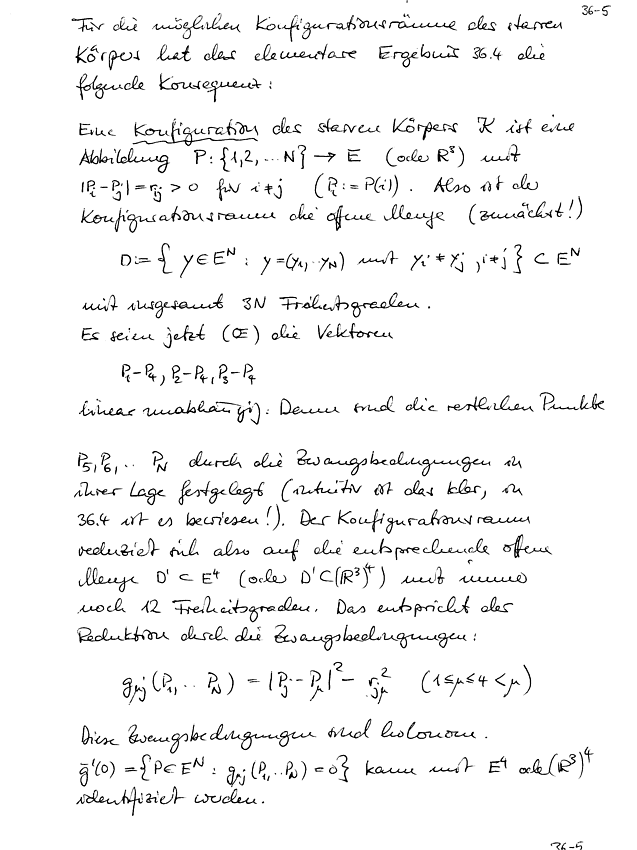 36-5
Für die möglichen Konfigurationsräume des starren
Körpers hat das elementare Ergebnis 36.4 die
folgende Konsequenz:
Eine Konfiguration des starren Körpers K ist eine
Abbildung P: {1,2,...N} → E (oder R³) mit
|Pᵢ-Pⱼ| = rᵢⱼ > 0 für i≠j (Pᵢ := P(i)). Also ist der
Konfigurationsraum die offene Menge (zunächst!)
D:= { y∈Eᴺ : y=(y₁,..y_N) mit yᵢ ≠ yⱼ, i≠j } ⊂ Eᴺ
mit insgesamt 3N Freiheitsgraden.
Es seien jetzt (Œ) die Vektoren
P₁-P₄, P₂-P₄, P₃-P₄
linear unabhängig: Dann sind die restlichen Punkte
P₅, P₆, .. P_N durch die Zwangsbedingungen in
ihrer Lage festgelegt (intuitiv ist das klar, in
36.4 ist es bewiesen!). Der Konfigurationsraum
reduziert sich also auf die entsprechende offene
Menge D' ⊂ E⁴ (oder D' ⊂ (R³)⁴) mit immer
noch 12 Freiheitsgraden. Das entspricht der
Reduktion durch die Zwangsbedingungen:
g_μj (P₁,.. P_N) = |Pⱼ-P_μ|² - r²_jμ (1≤μ≤4<μ)
Diese Zwangsbedingungen sind holonom.
g⁻¹(0) = {P∈Eᴺ : g_μj (P₁,..P_N) = 0} kann mit E⁴ oder (R³)⁴
identifiziert werden.
36-5